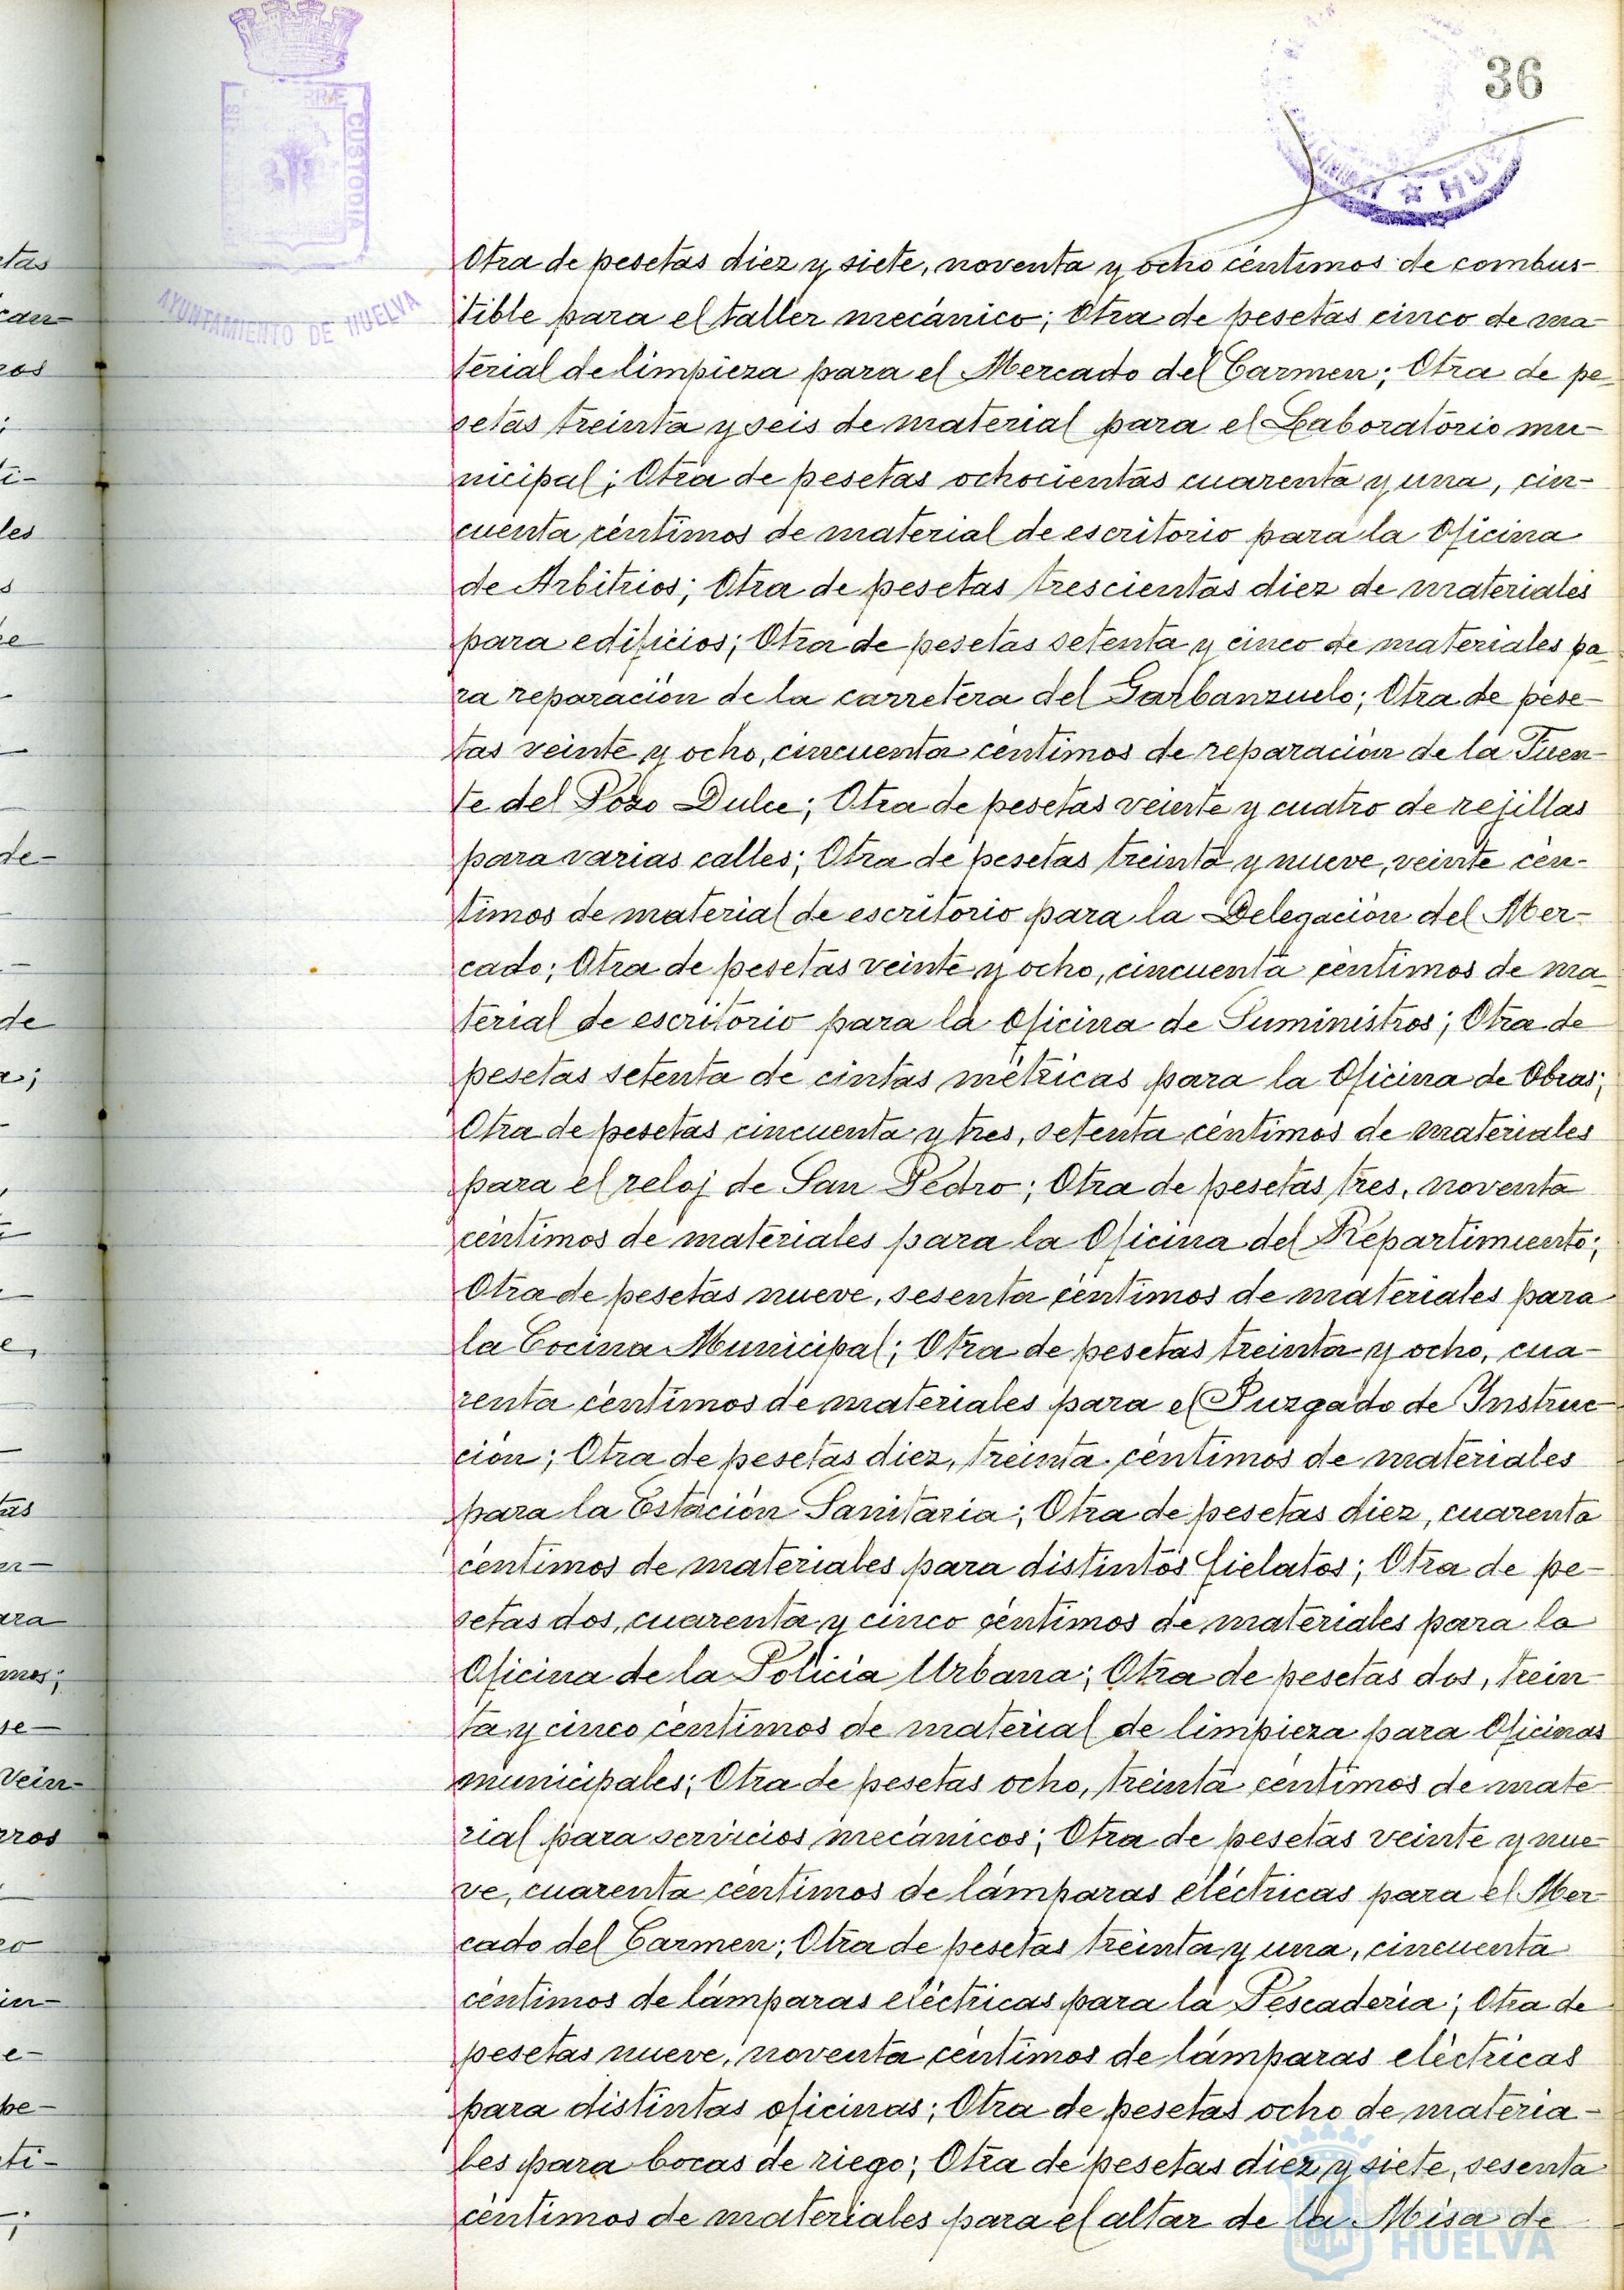 36
CUSTODIA
AYUNTAMIENTO DE HUELVA
Otra de pesetas diez y siete, noventa y ocho céntimos de combus-
tible para el taller mecánico; Otra de pesetas cinco de ma-
terial de limpieza para el Mercado del Carmen; Otra de pe-
setas treinta y seis de material para el Laboratorio mu-
nicipal; Otra de pesetas ochocientas cuarenta y una, cin-
cuenta céntimos de material de escritorio para la Oficina
de Arbitrios; Otra de pesetas trescientas diez de materiales
para edificios; Otra de pesetas setenta y cinco de materiales pa-
ra reparación de la carretera del Garbanzuelo; Otra de pese-
tas veinte y ocho, cincuenta céntimos de reparación de la Fuen-
te del Pozo Dulce; Otra de pesetas veinte y cuatro de rejillas
para varias calles; Otra de pesetas treinta y nueve, veinte cén-
timos de material de escritorio para la Delegación del Mer-
cado; Otra de pesetas veinte y ocho, cincuenta céntimos de ma-
terial de escritorio para la Oficina de Suministros; Otra de
pesetas setenta de cintas métricas para la Oficina de Obras;
Otra de pesetas cincuenta y tres, setenta céntimos de materiales
para el reloj de San Pedro; Otra de pesetas tres, noventa
céntimos de materiales para la Oficina del Repartimiento;
Otra de pesetas nueve, sesenta céntimos de materiales para
la Cocina Municipal; Otra de pesetas treinta y ocho, cua-
renta céntimos de materiales para el Juzgado de Instruc-
ción; Otra de pesetas diez, treinta céntimos de materiales
para la Estación Sanitaria; Otra de pesetas diez, cuarenta
céntimos de materiales para distintos fielatos; Otra de pe-
setas dos, cuarenta y cinco céntimos de materiales para la
Oficina de la Policía Urbana; Otra de pesetas dos, trein-
ta y cinco céntimos de material de limpieza para Oficinas
municipales; Otra de pesetas ocho, treinta céntimos de mate-
rial para servicios mecánicos; Otra de pesetas veinte y nue-
ve, cuarenta céntimos de lámparas eléctricas para el Mer-
cado del Carmen; Otra de pesetas treinta y una, cincuenta
céntimos de lámparas eléctricas para la Pescadería; Otra de
pesetas nueve, noventa céntimos de lámparas eléctricas
para distintas oficinas; Otra de pesetas ocho de materia-
les para bocas de riego; Otra de pesetas diez y siete, sesenta
céntimos de materiales para el altar de la Misa de
Ayuntamiento de
HUELVA